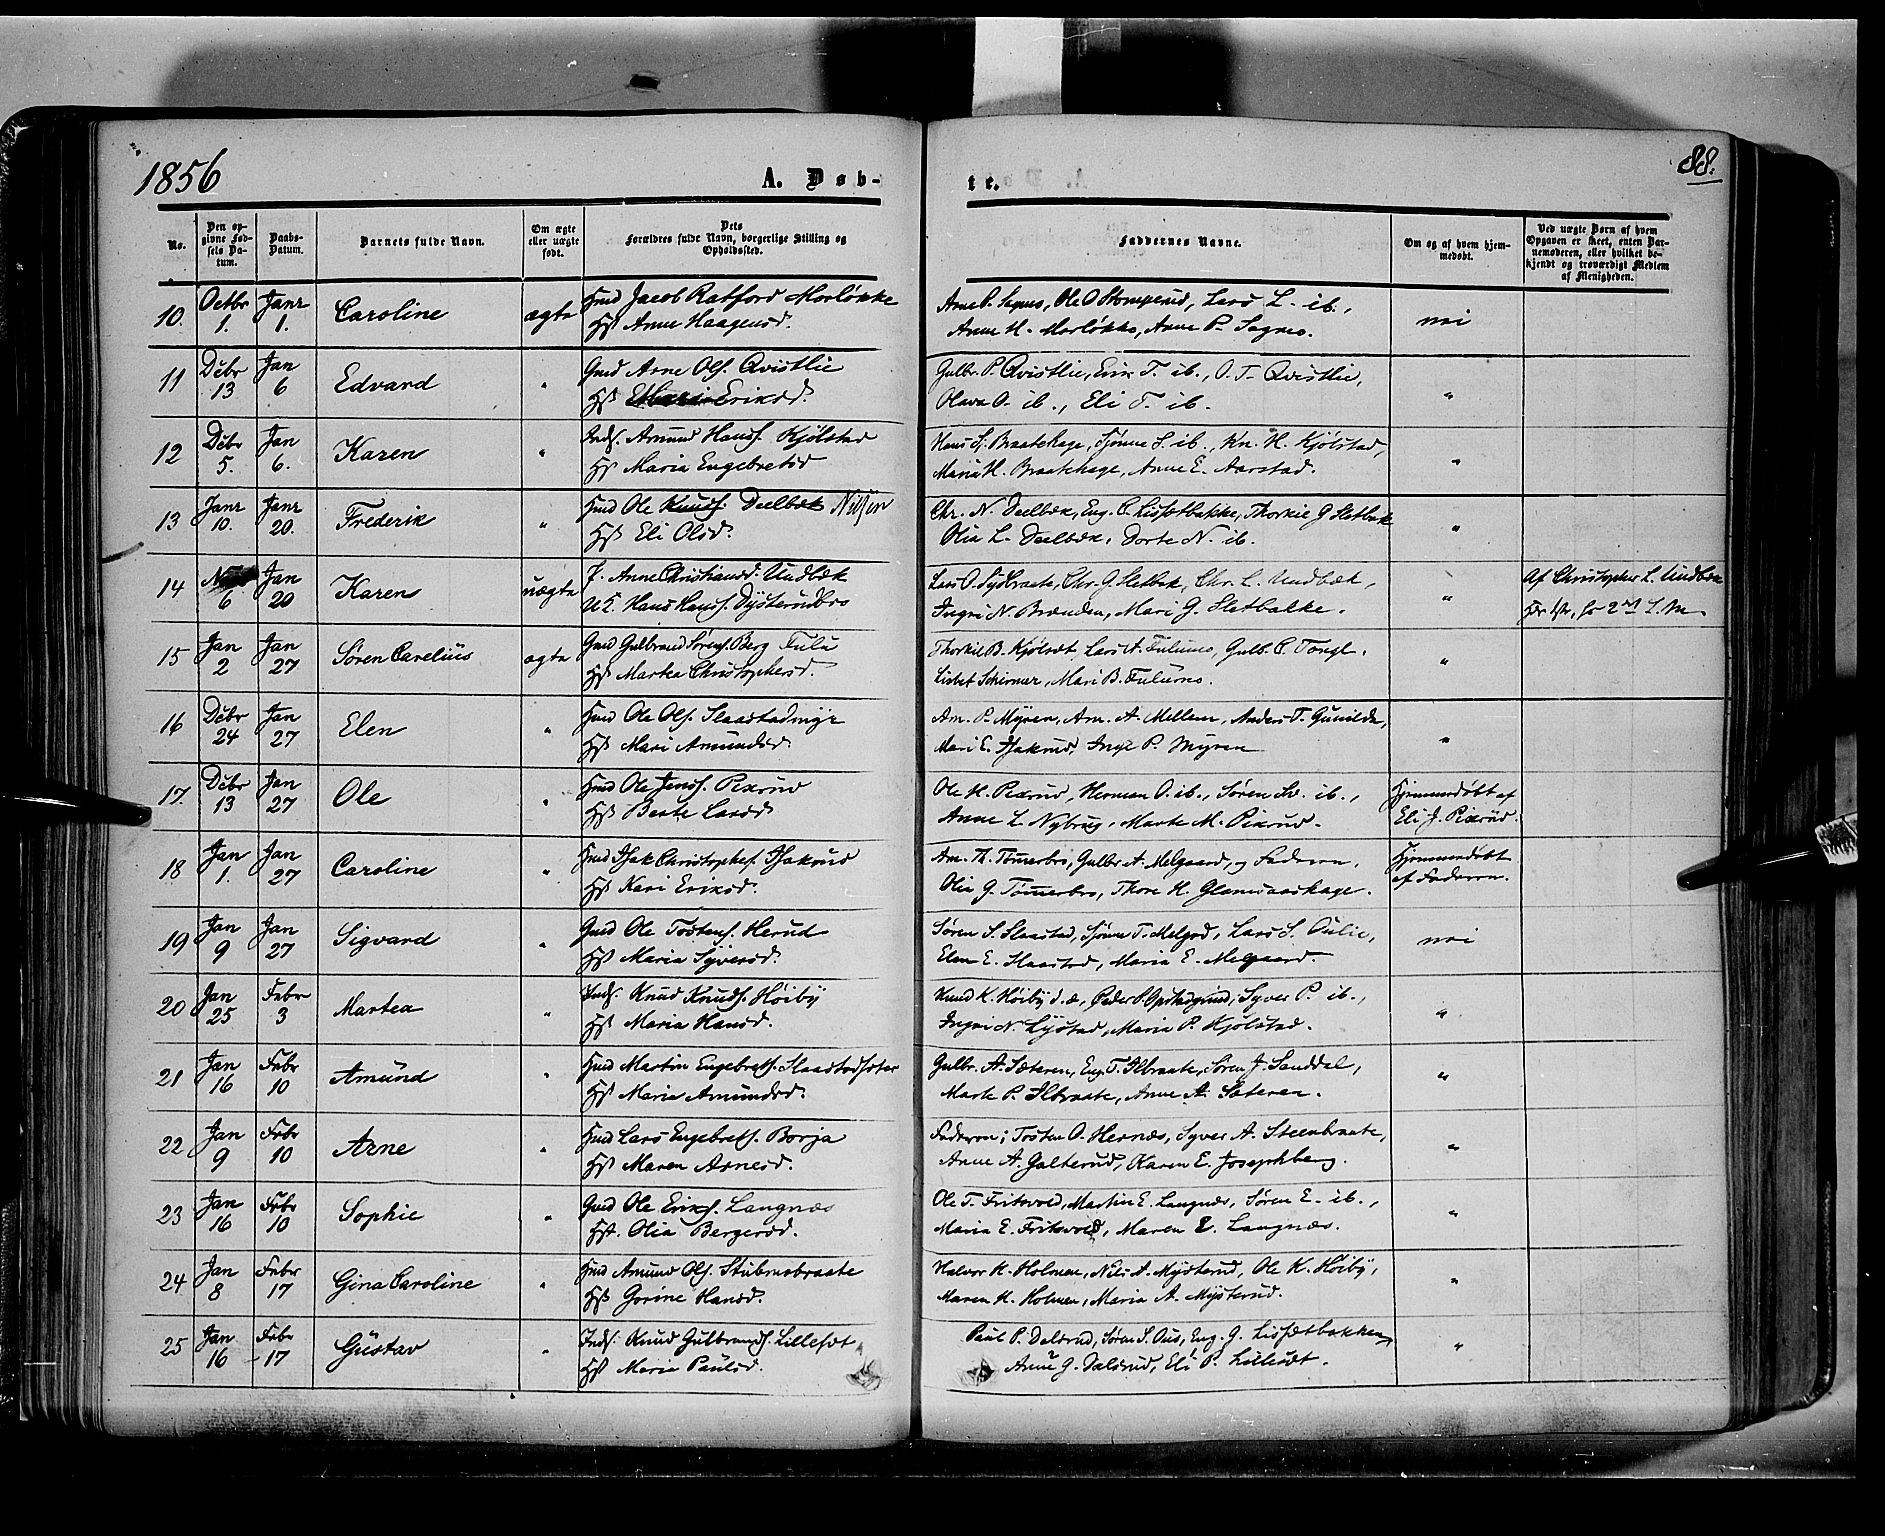 1856
A. Døb-
te.
88.
No.
Den op-
givne Fød-
sels Da-
tum.
Daabs-
Datum.
Barnets fulde Navn.
Om ægte
eller uægte
født.
Dets
Forældres fulde Navn, borgerlige Stilling og
Opholdssted.
Faddernes Navne.
Om og af hvem hjem-
medøbt.
Ved uægte Børn af hvem
Opgaven er skeet, enten Bar-
nemoderen, eller hvilket be-
kjendt og troværdigt Medlem
af Menigheden.
10. Octbr 1. Janr 1. Caroline ægte Hmd Jacob Ratford Morløkke
Hst Anne Haagensd.
Arne P. Sagnes, Ole O Stomperud, Lars L. ib.,
Anne H. Morløkke, Anne P. Sagnes.
nei
11 Dcbr 13 Jan 6 Edvard " Gmd Arne Ols. Qvistlie
Hst Eriksd.
Gulbr. P. Qvistlie, Erik T. ib., O. T. Qvistlie,
Olava O. ib., Eli T. ib.
"
12 Dcbr 5. Jan 6. Karen " Inds. Amund Hans. Kjølstad
Hst Maria Engebretsd
Hans S. Braatehage, Sjønne S. ib., Kn. H. Kjølstad,
Maria H. Braatehage, Anne E. Aarstad.
"
13 Janr 10. Janr 20. Frederik " Hmd Ole Knuds. Deelbæk Nilsen
Hst Eli Olsd.
Chr. N. Deelbæk, Eng. C. Lissætbakke, Thorkil G Sletbak
Olia L. Deelbæk, Dorte N. ib.
"
14 6 Jan 20 Karen uægte P. Anne Christiansd. Undbæk
UK. Hans Hans. Dysterudbro
Lars O. Sydbraate, Chr. G. Sletbak, Chr. L. Undbæk,
Ingri N. Brænden, Mari G. Sletbakke.
"
Af Christopher L. Undbæk
15 Jan 2 Jan 27 Søren Carelius ægte Gmd Gulbrand Sørens. Berg Fulu
Hst Martea Christophersd.
Thorkil B. Kjølsæt, Lars A. Fulumo, Gulb. C. Tongl.
Lisbet Schirmer, Mari B. Fulumo.
"
16 Dcbr 24 Jan 27 Elen " Hmd Ole Ols. Slaastadmyr
Hst Mari Amundsd.
Am. P. Myren, Am. A. Mellem, Anders T. Gunilde,
Mari E. Isakrud, Inge P. Myren
"
17. Dcbr 13 Jan 27 Ole " Hmd Ole Jens. Pixrud
Hst Berte Larsd.
Ole H. Pixrud, Herman O. ib., Søren ib.,
Anne L. Nybrug, Marte M. Pixrud.
Hjemmedøbt af
Eli J. Pixrud.
18 Jan 1. Jan 27 Caroline " Hmd Isak Christophes. Isakrud
Hst Kari Eriksd.
Am. Th. Tømmerbro, Gulbr. A. Melgaard, og Faderen,
Olia G. Tømmerbro, Thore H. Glemsaashage.
Hjemmedøbt
af Faderen.
19 Jan 9 Jan 27 Sigvard " Gmd Ole Tostens. Herud
Hst Maria Syversd.
Søren S. Slaastad, Sjønne T. Melgrd, Lars S. Oulie,
Elen E. Slaastad, Maria E. Melgaard.
nei
20 Jan 25 Febr 3 Martea " Inds. Knud Knuds. Høiby
Hst Maria Hansd.
Knud K. Høiby d. æ, Peder P. Opstadgrind, Syver P. ib.,
Ingri N. Lystad, Maria P. Kjølstad.
"
21 Jan 16 Febr 10 Amund " Hmd Martin Engebrets. Slaastadsæter
Hst Maria Amundsd.
Gulbr. A. Sæteren, Eng. T. Ilbraate, Søren J. Sanddal,
Marte P. Ilbraate, Anne A. Sæteren.
"
22 Jan 9 Febr 10 Arne " Hmd Lars Engebrets. Borja
Hst Maren Arnesd.
Faderen; Tosten O. Hernæs, Syver A. Steenbraate,
Anne A. Galterud, Karen E. Josephberg.
"
23 Jan 16 Febr 10 Sophie " Gmd Ole Eriks. Langnæs
Hst. Olia Bergersd.
Ole T. Fritsvold, Martin E. Langnæs, Søren E. ib.,
Maria E. Fritsvold, Maren E. Langnæs.
"
24 Jan 8 Febr 17 Gina Caroline " Hmd Amund Ols. Stubmobraate
Hst Gorine Hansd.
Halvor K. Holmen, Nils A. Mysterud, Ole K. Høiby,
Maren K. Holmen, Maria A. Mysterud.
"
25 Jan 16 Febr 17 Gustav " Inds. Knud Gulbrands. Lillesæt
Hst Maria Paulsd.
Paul P. Dalsrud, Søren S. Ous, Eng. G. Lissætbakken,
Anne G. Dalsrud, Eli P. Lillesæt.
"